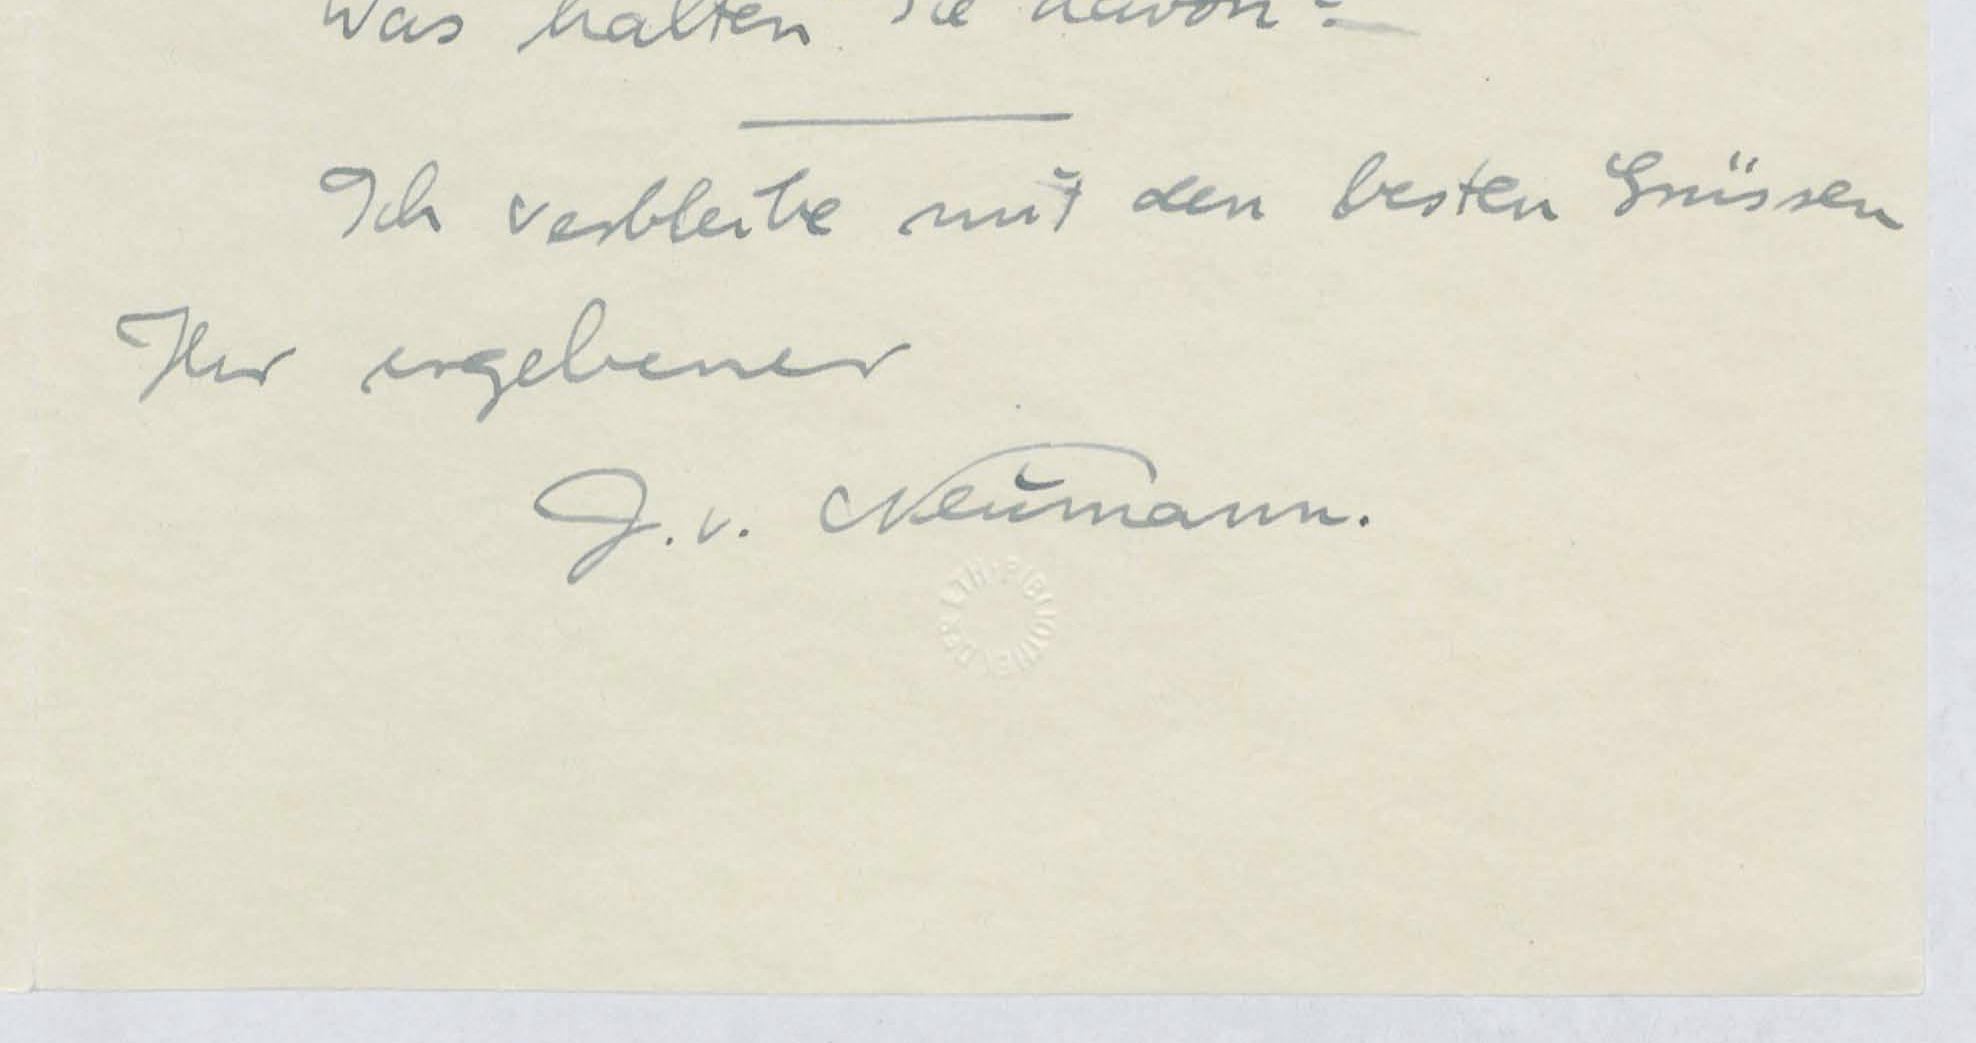 Was halten Sie davon?
Ich verbleibe mit den besten Grüssen
Ihr ergebener
J. v. Neumann.
BIBLIOTHEK DER ETH